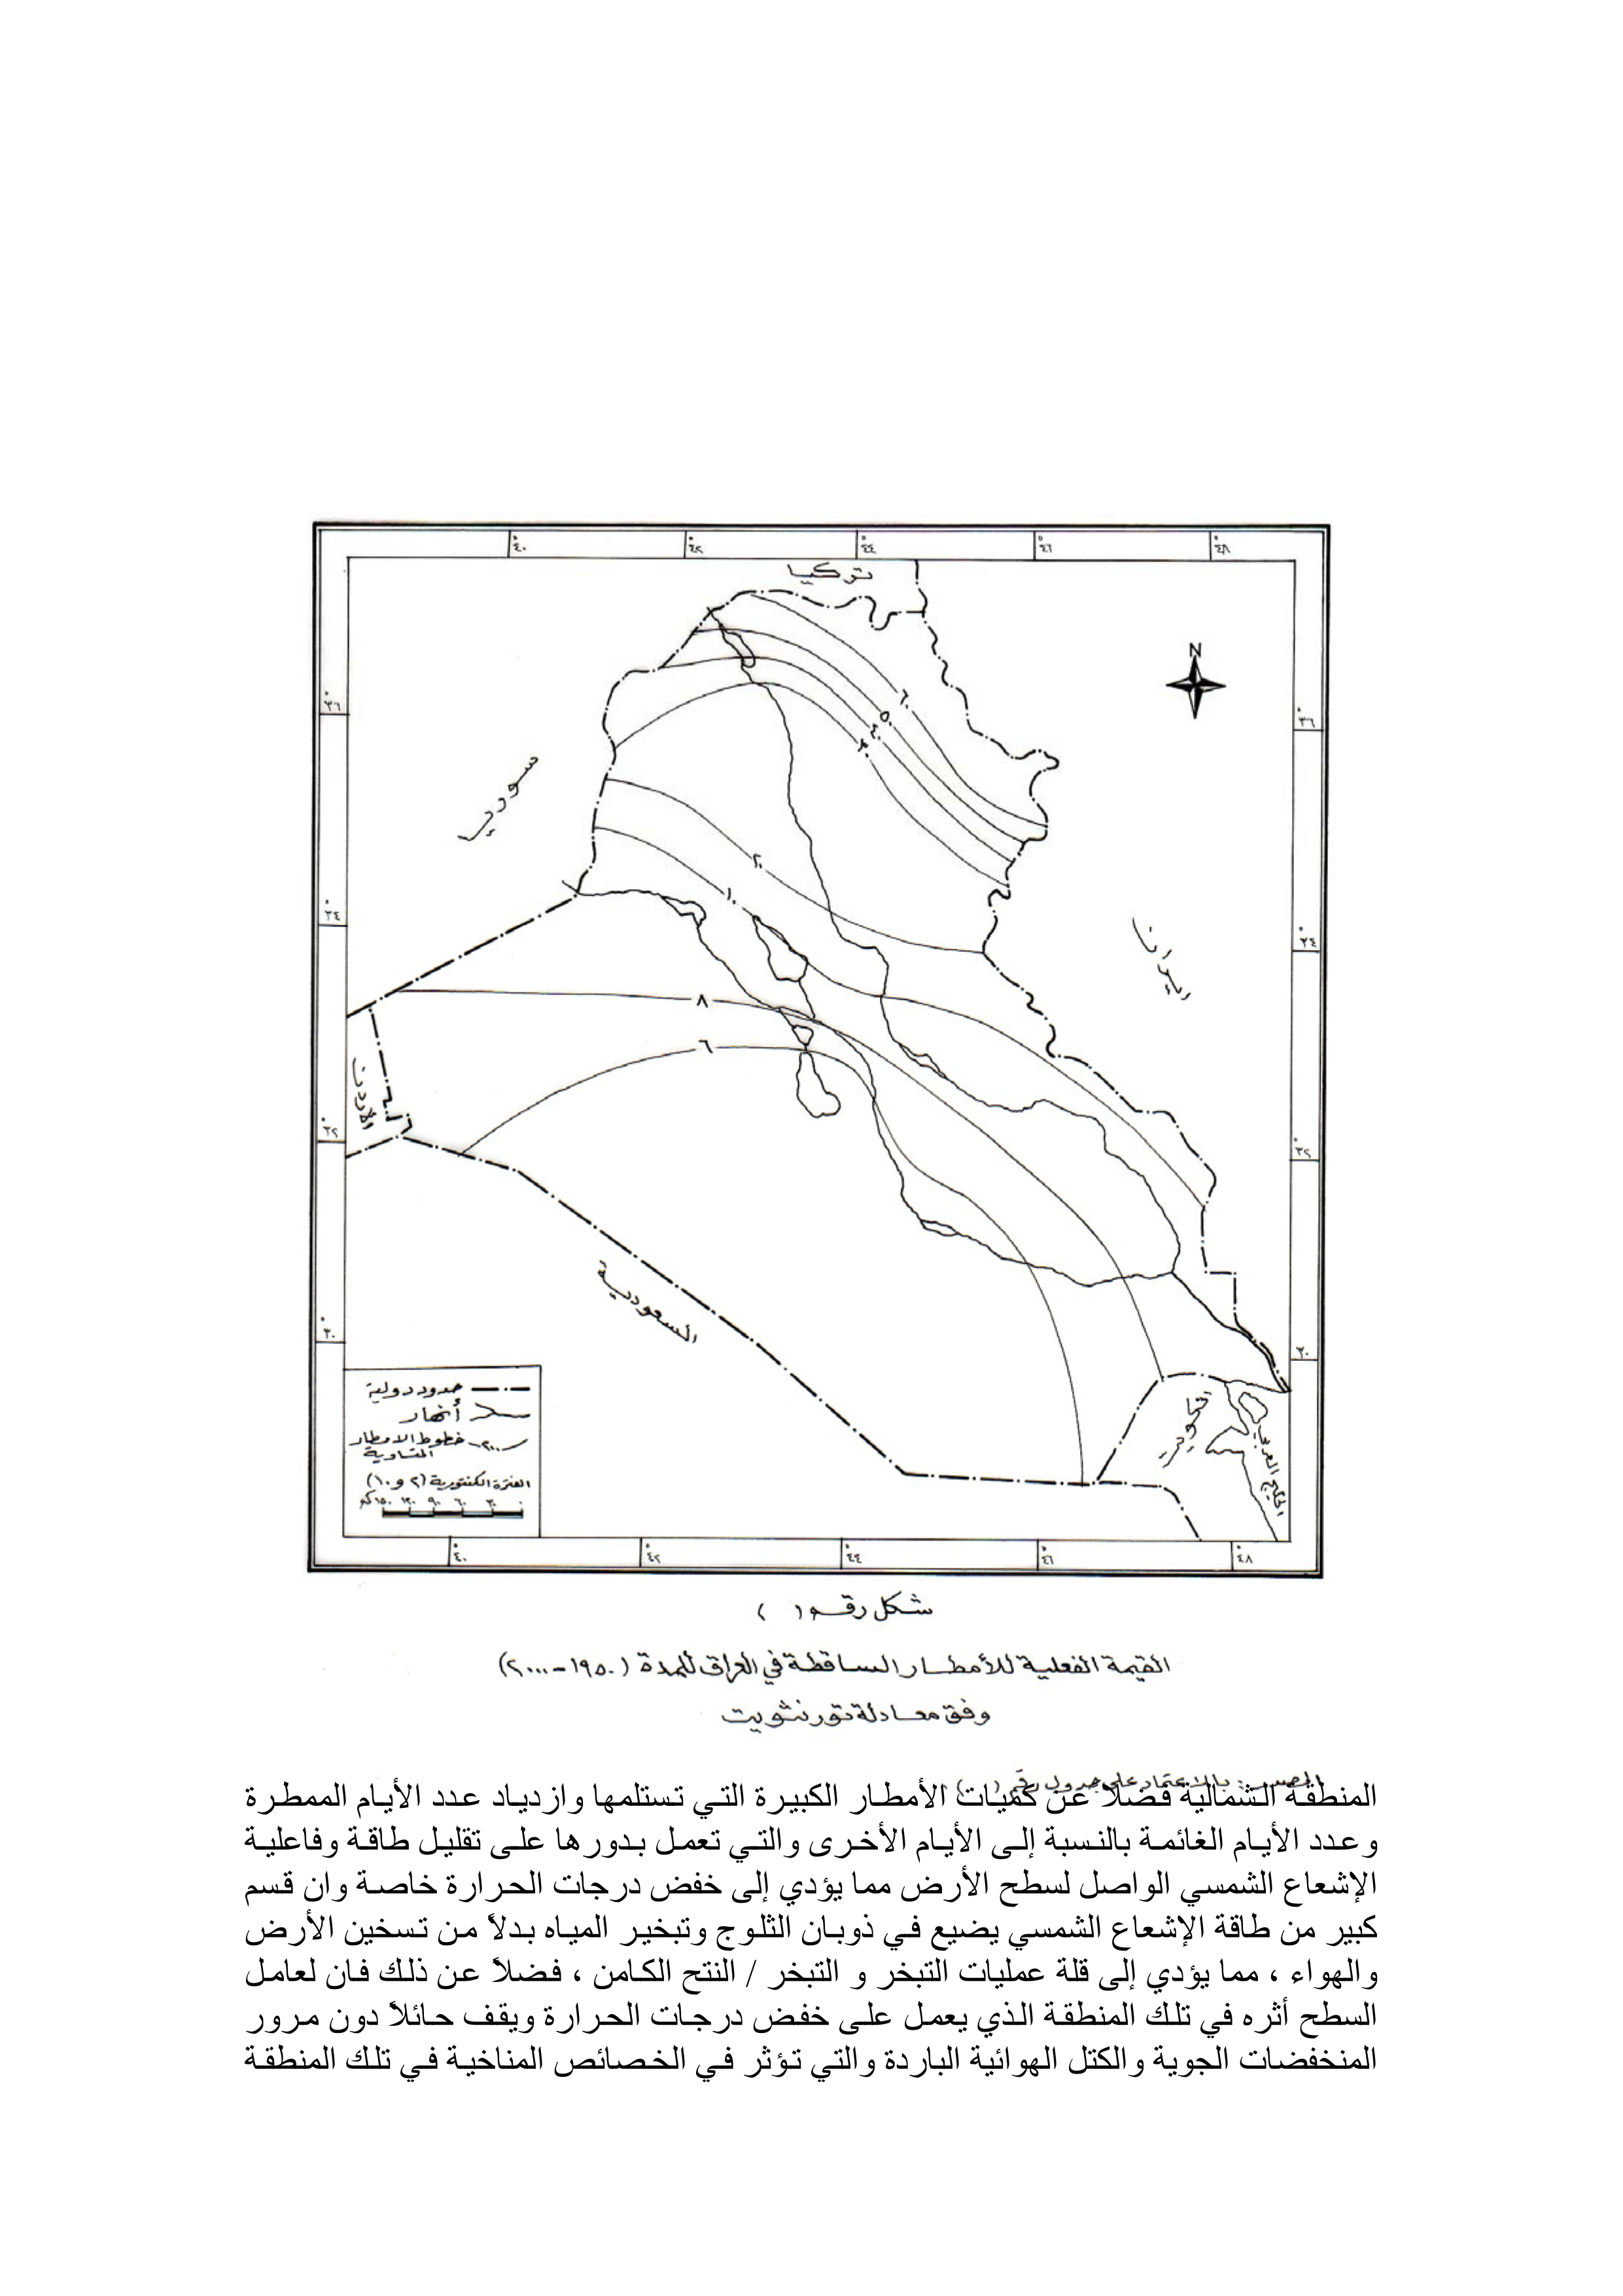 ٤٠ ٤٢ ٤٤ ٤٦ ٤٨
تركيا
N
٣٦ ٣٦
٦٠
٥٠
٤٠
٣٠
سوريا
٢٠
١٠
٣٤ ٣٤
ايران
٨
٦
الأردن
٣٢ ٣٢
السعودية
٣٠ ٣٠
حدود دولية
أنهار
خطوط الامطار
المتساوية
٢٠٠
الفترة الكنتورية (٢ و ١٠)
٠ ٣٠ ٦٠ ٩٠ ١٢٠ ١٥٠ كم
الكويت
الخليج العربي
٤٠ ٤٢ ٤٤ ٤٦ ٤٨
شكل رقم ( )
القيمة الفعلية للأمطار الساقطة في العراق للمدة (١٩٥٠-٢٠٠٠)
وفق معادلة ثورنثويت
بالاعتماد على جدول رقم ( )
المنطقة الشمالية فضلاً عن كميات الأمطار الكبيرة التي تستلمها وازدياد عدد الأيام الممطرة
وعدد الأيام الغائمة بالنسبة إلى الأيام الأخرى والتي تعمل بدورها على تقليل طاقة وفاعلية
الإشعاع الشمسي الواصل لسطح الأرض مما يؤدي إلى خفض درجات الحرارة خاصة وان قسم
كبير من طاقة الإشعاع الشمسي يضيع في ذوبان الثلوج وتبخير المياه بدلاً من تسخين الأرض
والهواء ، مما يؤدي إلى قلة عمليات التبخر و التبخر / النتح الكامن ، فضلاً عن ذلك فان لعامل
السطح أثره في تلك المنطقة الذي يعمل على خفض درجات الحرارة ويقف حائلاً دون مرور
المنخفضات الجوية والكتل الهوائية الباردة والتي تؤثر في الخصائص المناخية في تلك المنطقة